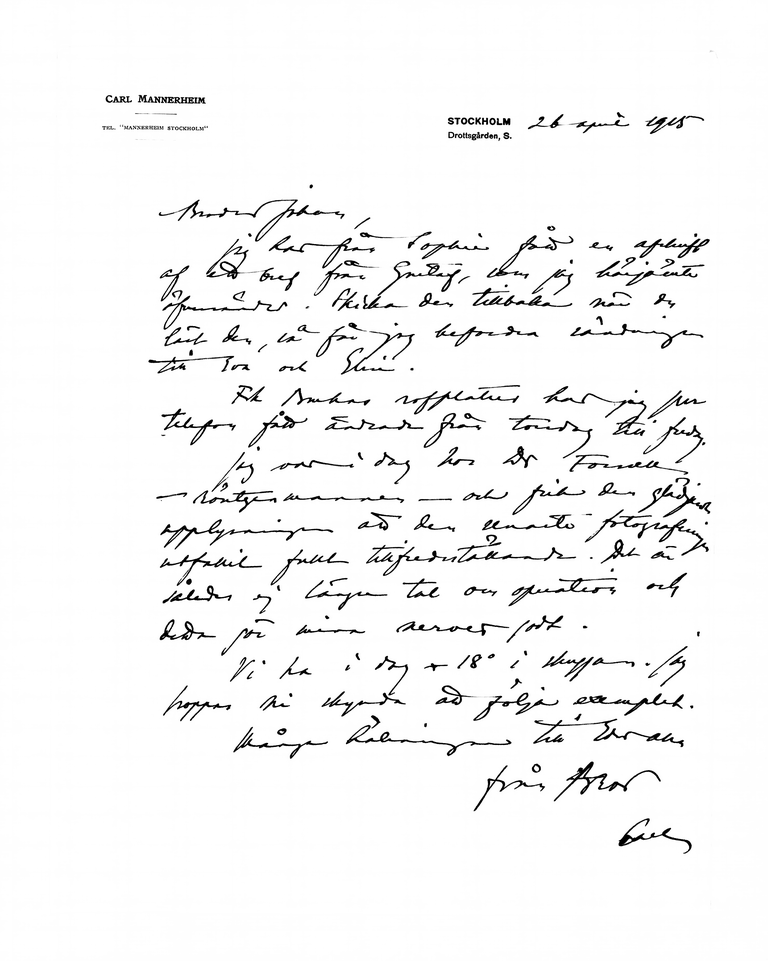 CARL MANNERHEIM
TEL. "MANNERHEIM STOCKHOLM"
STOCKHOLM 26 april 1915
Drottsgården, S.
Broder Johan,
jag har från Sophie fått en afskrift
af ett bref från Gustaf, som jag härjämte
öfversänder. Skicka den tillbaka när du
läst den, så får jag befordra sändningen
till Eva och
sofplatser har jag per
telefon fått ändrade från torsdag till fredag.
Jag var i dag hos Dr Forssell
— röntgenmannen — och fick den glädjande
upplysningen att den senaste fotograferingen
utfallit fullt tillfredsställande. Det är
således ej längre tal om operation och
detta gör mina nerver godt.
Vi ha i dag + 18° i skuggan. Jag
hoppas ni skynda att följa exemplet.
Många hälsningar till Eder alla
från Bror
Carl